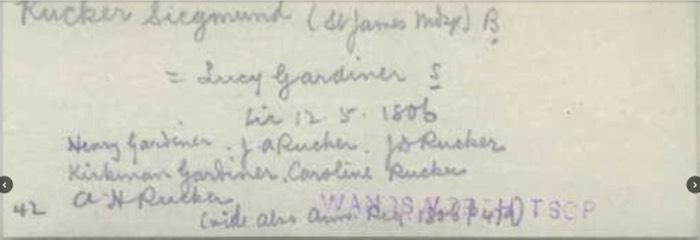 Rucker Siegmund (St James Mdx) B
= Lucy Gardiner S
Lic 12. 5. 1806
Henry Gardiner. J A Rucker. J S Rucker
Kirkman Gardiner. Caroline Rucker
A H Rucker
42 (vide also Ann. Reg. 1806 p